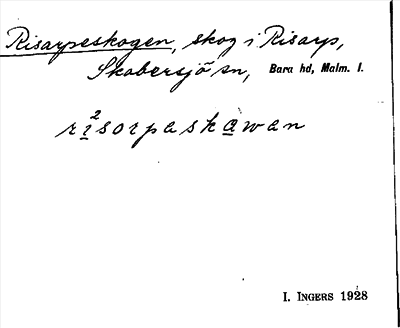 Risarpeskogen, skog i Risarp,
Skabersjö sn, Bara hd, Malm. l.
ri²sorpaskawan
I. INGERS 1928